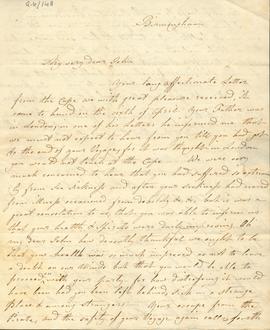 Q.6/148
Birmingham
My very dear John
Your long affectionate Letter
from the Cape we with great pleasure received, it
came to hand in the month of April. Your Father was
in London, in one of his letters he informed me that
we must not expect to hear from you till you had got
to the end of your Voyage, for it was thought in London
you would not touch at the Cape. We were very
much concerned to hear that you had suffered so
by Sea Sickness and after your sickness had
from illness occasioned from &c, but it was a
great consolation to us, that you was able to inform us
that your health & Spirits were daily improving. Oh
my dear John how devoutly thankful we ought to be
that your health was so much improved as not to leave
a doubt on our minds but that you would be able to
proceed with your for how distressing it would
have been had you been left behind, in a strange
Place & among strangers. Your escape from the
Pirates, and the safety of your Voyage again calls forth